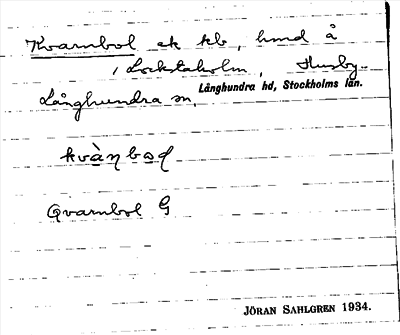 Kvarnbol ek kb, hmd å
, Lockstaholm, Husby-
Långhundra hd, Stockholms län.
Långhundra sn.
kvàṇbol
Qvarnbol G
JÖRAN SAHLGREN 1934.